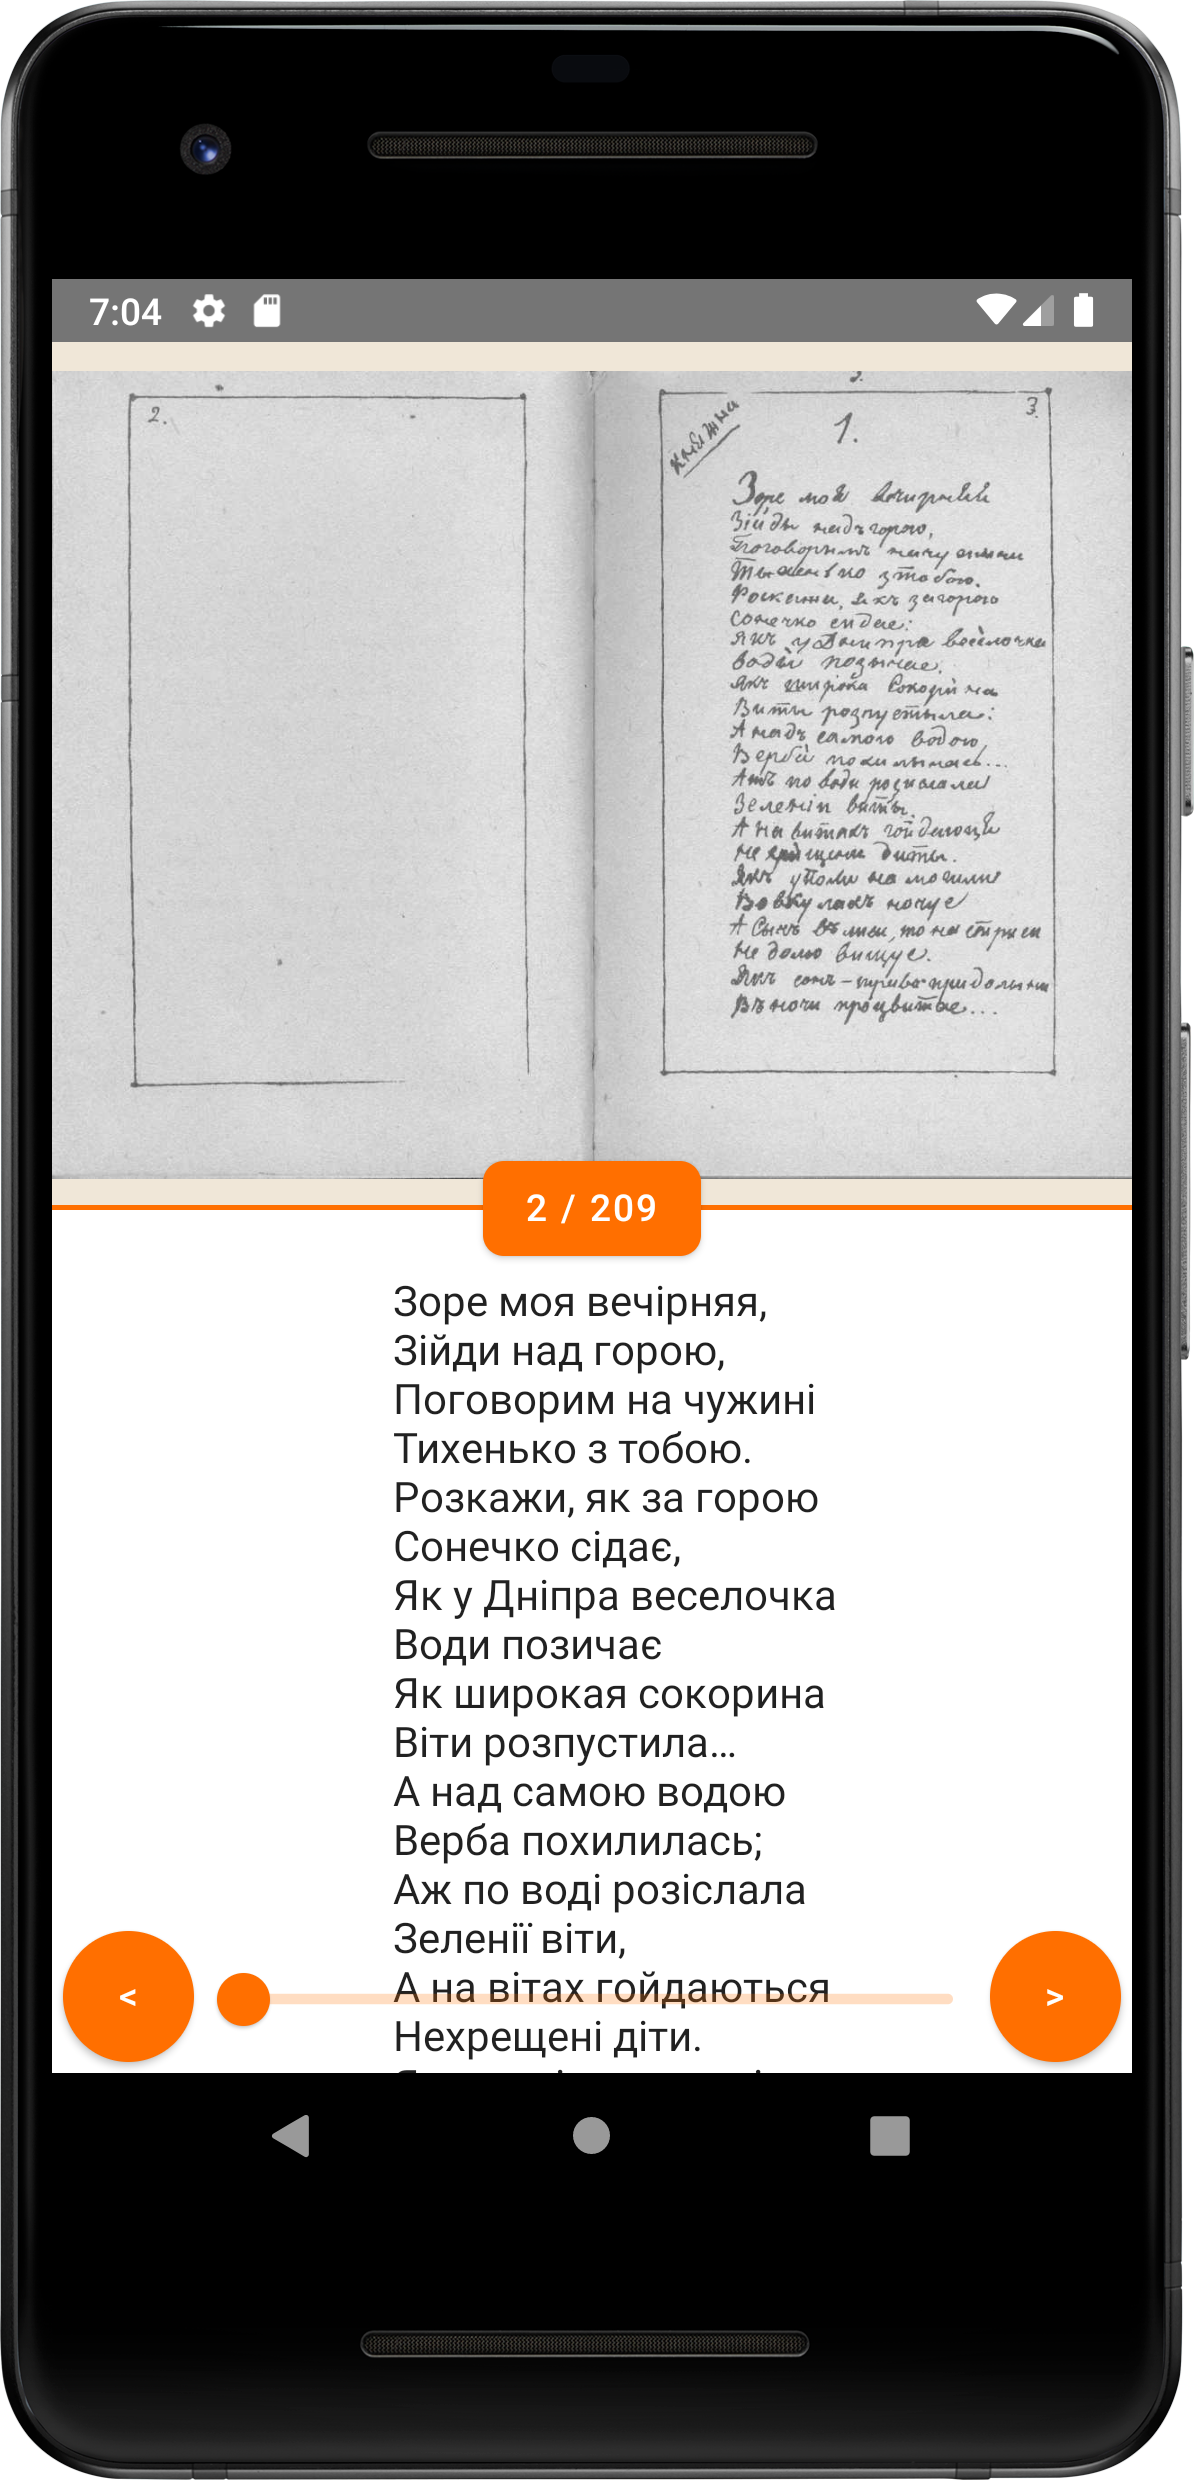 7:04
2.
3.
Княжна
1.
Зоре моя вечирняя
Зійды надъ горою,
Поговорымъ
зтобою.
якъ загорою
Сонечко сидае:
Якъ уДнипра весёлочка
Воды позычае.
Якъ широка Сокорина
Виты розпустыла:
А надъ самою водою,
Верба похилылась...
Ажъ по води розислала
Зеленіи виты.
А на витахъ гойдаюця
Не хрещени диты.
Якъ уполи на могили
Вовкулакъ ночуе
А Сычъ въ лиси, то на стриси
Не долю вищуе.
Якъ сонъ-трава придолыни
Въночи процвитае...
2 / 209
Зоре моя вечірняя,
Зійди над горою,
Поговорим на чужині
Тихенько з тобою.
Розкажи, як за горою
Сонечко сідає,
Як у Дніпра веселочка
Води позичає
Як широкая сокорина
Віти розпустила...
А над самою водою
Верба похилилась;
Аж по воді розіслала
Зеленії віти,
А на вітах гойдаються
Нехрещені діти.
<
>